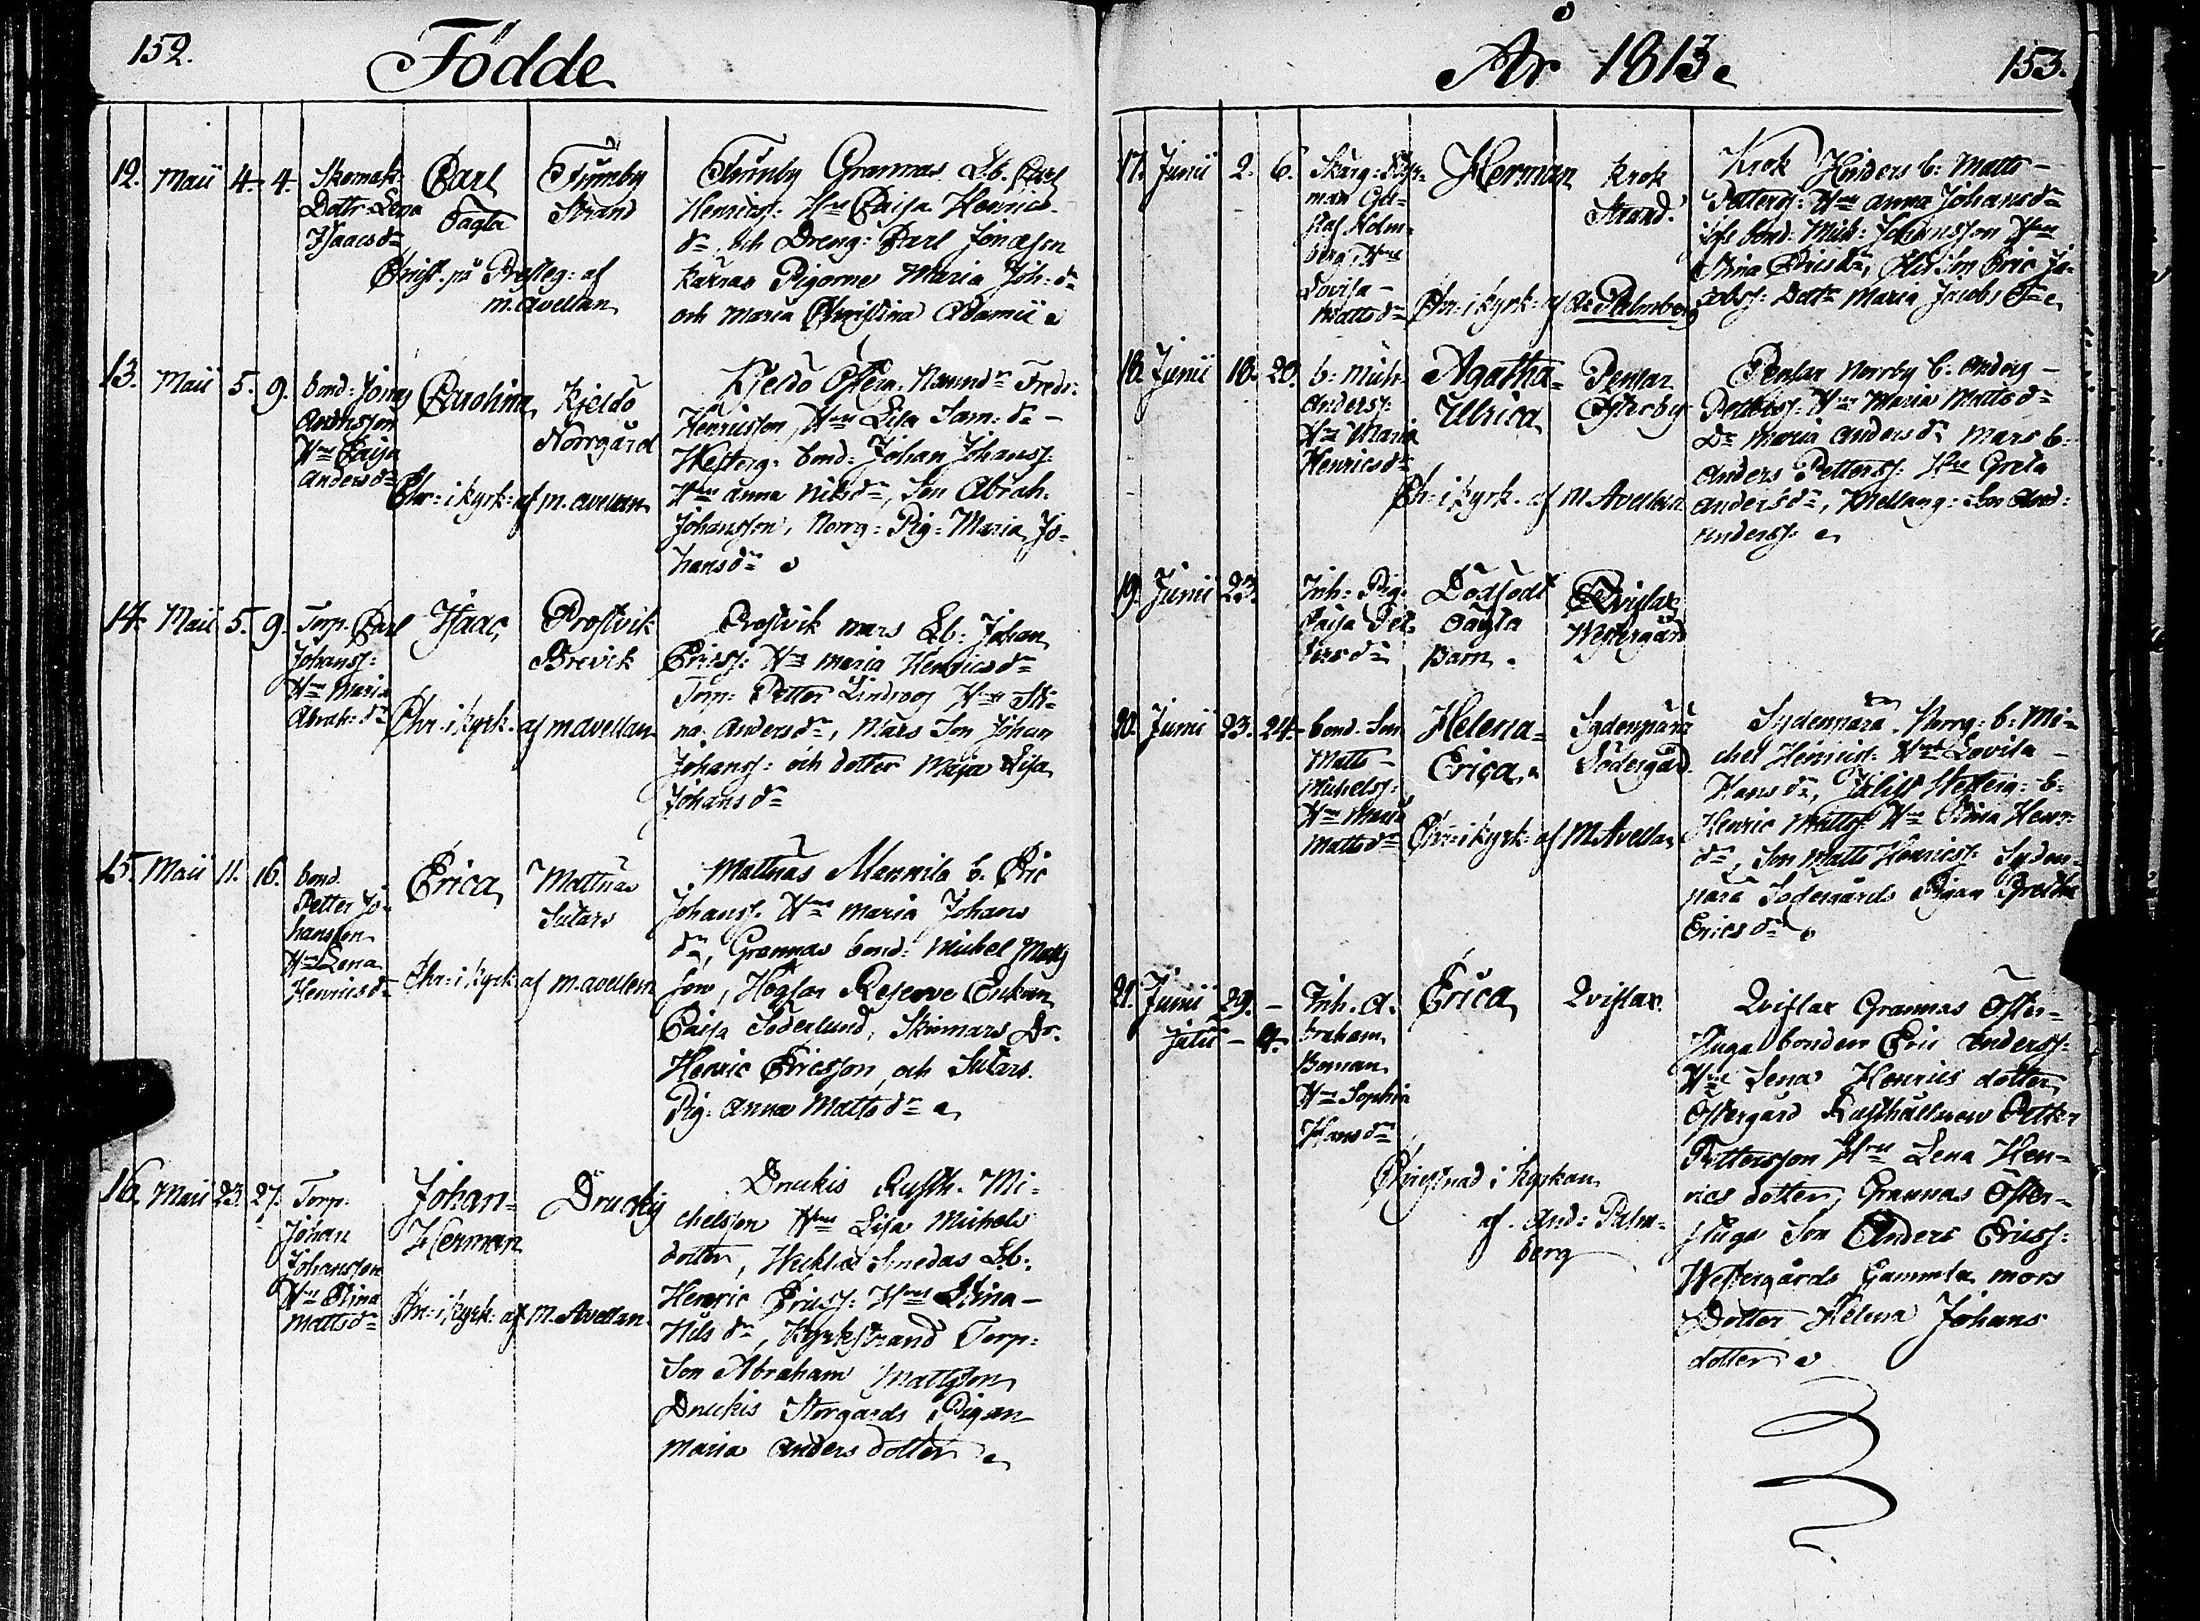 152.
Födde
12. Maii 4. 4.
Dottr Lena
Isaacs dr
Carl
oägta
Strand
Christ. på Presteg: af
M. Avellan
Grannas Lb. Carl
Henricss: Hru Caisa Henrics
dr, och Dreng: Carl Jonasson
Pigorne Maria Joh: dr
och Maria Christina Adamii
13. Maii 5. 9.
bond: Jonas
Hru Caisa
Anders dr
Carolina
Kjeldo
Norrgård
Chr: i kyrk: af M. Avellan
Kjeldo Österg: Nämnd: Fredr:
Henricsson, Hru Lisa Sam: dr
Westerg: bond: Johan Johanss:
Hru Anna Nils dr, Son Abrah:
Johansson, Norrg: Pig: Maria Jo-
hans dr
14. Maii 5. 9.
Torp. Carl
Johanss:
Hru Maria
Abrah: dr
Isaac
Prostvik
Brevik
Chr: i kyrk: af M Avellan
Prostvik Mars Lb: Johan
Ericss: Hru Maria Henrics dr
Torp: Petter Lindroos Hru Sti-
na Anders dr, Mårs Son Johan
Johanss: och dotter Maja Lisa
Johans dr
15. Maii 11. 16.
bond.
Petter Jo-
hansson
Hru Lena
Henrics dr
Erica
Mattnäs
Sutars
Chr: i kyrk: af M. Avellan
Mattnäs Mannila b. Eric
Johanss. Hru Maria Johans
dr, Grannas bond: Michel Matts
son, Högsar Reserve Enkan
Caisa Söderlund, Skinnars Dr.
Henric Ericsson, och Sutars
Pig: Anna Matts dr
16. Maii 23. 27.
Torp.
Johan
Johansson
Hru Stina
Matts dr
Johan
Herman
Druckis
Chr: i kyrk: af M. Avellan
Druckis Rusth. Mi-
chelsson Hru Lisa Michels
dotter, Wicklax Smedas Lb:
Henric Ericss: Hru Stina
Nils dr, Kyrkstrand Torp:
Son Abraham Mattsson
Druckis Storgårds Pigan
Maria Anders dotter
År 1813
153.
17. Junii 2. 6.
man Gu-
staf Holm-
berg Hru
Lovisa
Matts dr
Herman
Krok
Strand.
Chr: i kyrk: af A: Palmberg
Krok Hinders b: Matts
Petterss: Hru Anna Johans dr
bond: Mich: Johansson Hru
Stina Erics dr, Son Eric Ja-
cobss: Dottr Maria Jacobs dr
18. Junii 18. 20.
b: Mich:
Anderss:
Hru Maria
Henrics dr
Agatha
Ulrica
Pensar
Österby
Chr: i kyrk. af M. Avellan
Pensar Norrby b. Anders
Petterss: Hru Maria Matts dr
Dr Maria Anders dr Mars b:
Anders Petterss: Hru Greta
Anders dr, Mellang: Son And:
Anderss:
19. Junii 23.
Inh: Pig:
Caisa Pet-
ters dr
Dödfödt
oägta
Barn.
Qvislax
Westergård
20. Junii 23. 24.
bond. Son
Matts
Michelss:
Hru Maria
Matts dr
Helena
Erica
Sydenpära
Södergård
Chr: i kyrk: af M. Avellan
Sydenpära Norrg: b: Mi-
chel Henricss: Hru Lovisa
Hans dr, Westerg: b:
Henric Mattss: Hru Stina Henr:
dr, Son Matts Henricss: Syden-
pära Södergårds Pigan
Erics dr
21. Junii 29. -
Julii - 4.
Inh. A-
braham
Boman
Hru Sophia
Hans dr
Erica
Qvislax.
Christnad i kyrkan
af And: Palm-
berg
Qvislax Grannas Öster-
stuga bonden Eric Anderss:
Hru Lena Henrics dotter
Östergård Rusthållaren Petter
Pettersson Hru Lena Hen-
rics dotter, Grannas Öster-
stuga Son Anders Ericss:
Westergårds Gammla mors
Dotter Helena Johans
dotter